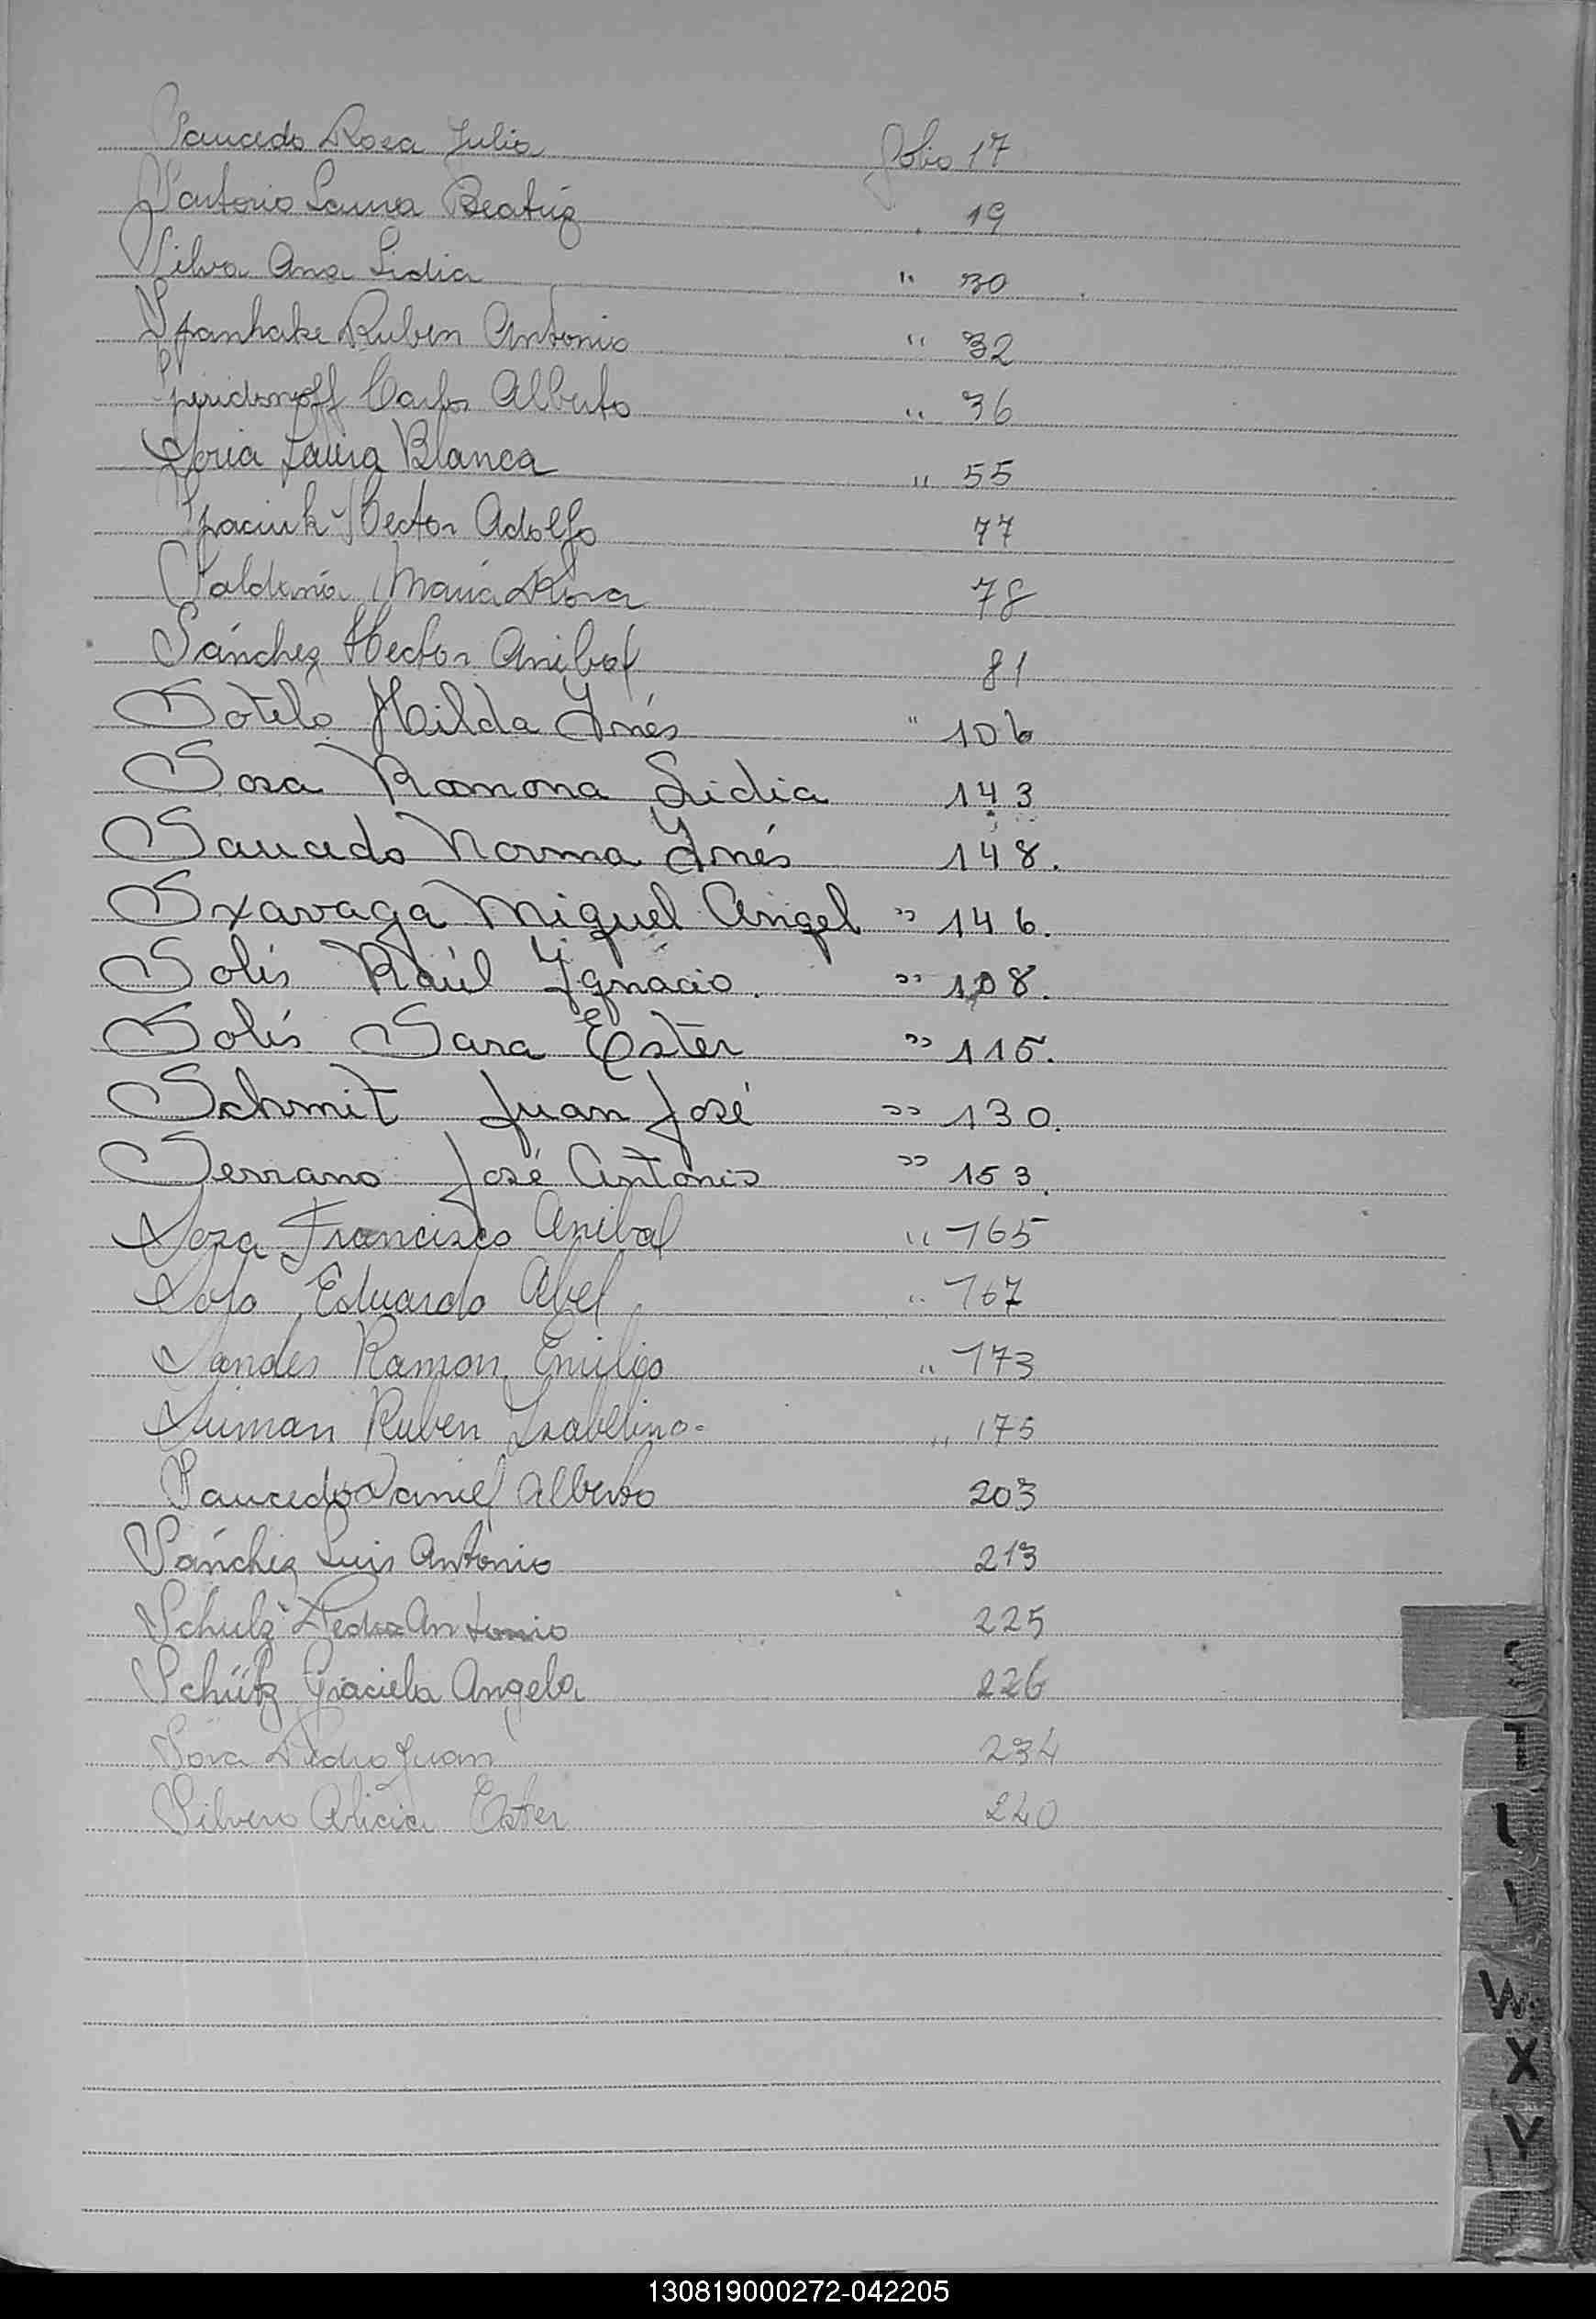 Saucedo Rosa Julia folio 17
Sartorio Laura Beatriz " 19
Silva Ana Lidia " 30
Spanhake Ruben Antonio " 32
Spiridonoff Carlos Alberto " 36
Soria Laura Blanca " 55
Spaciuk Hector Adolfo 77
Saldaña Maria Rosa 78
Sánchez Hector Anibal 81
Sotelo Hilda Inés " 106
Sosa Ramona Lidia 143
Saucedo Norma Inés 148.
Sxavaga Miguel Angel " 146.
Solis Raúl Ignacio. " 108.
Solis Sara Ester " 115.
Schmit Juan José " 130.
Serrano José Antonio " 153.
Soza Francisco Anibal " 165
Soto Eduardo Abel " 167
Sandes Ramon Emilio " 173
Suiman Ruben Isabelino- " 175
Saucedo Daniel Alberto 203
Sánchez Luis Antonio 213
Schulz Pedro Antonio 225
Schütz Graciela Angela 226
Sosa Pedro Juan 234
Silvero Alicia Ester 240
S
T
W
X
Y
130819000272-042205